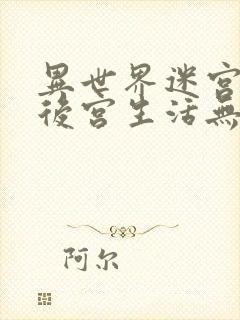 異世界迷宮
後宮生活無
阿尔